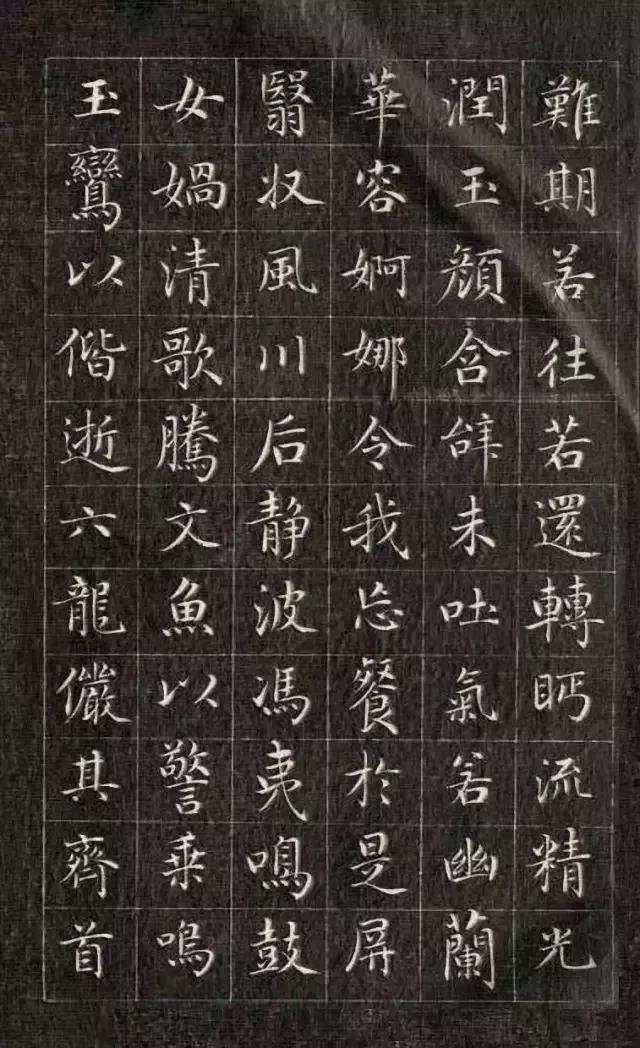 難期若往若還轉眄流精光
潤玉顏含辝未吐氣若幽蘭
華容婀娜令我忘餐於是屏
翳収風川后静波馮夷鳴鼓
女媧清歌騰文魚以警乘鳴
玉鸞以偕逝六龍儼其齊首